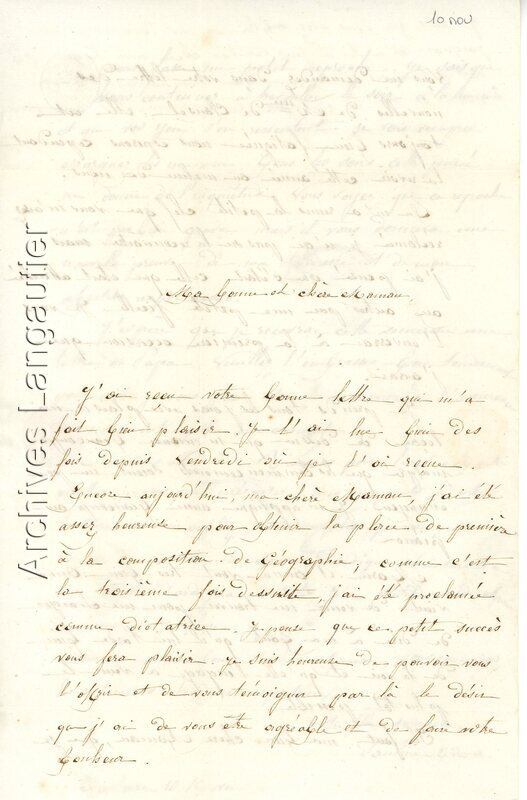 10 nov
Ma bonne et chère Maman,
J'ai reçu votre bonne lettre qui m'a
fait bien plaisir. Je l'ai lue bien des
fois depuis Vendredi où je l'ai reçue.
Encore aujourd'hui, ma chère Maman, j'ai été
assez heureuse pour obtenir la place de première
à la composition de Géographie, comme c'est
la troisième fois dessuite, j'ai été proclamée
comme dictatrice. Je pense que ce petit succès
vous fera plaisir. Je suis heureuse de pouvoir vous
l'offrir et de vous témoigner par là le désir
que j'ai de vous être agréable et de faire votre
bonheur.
Archives Langautier